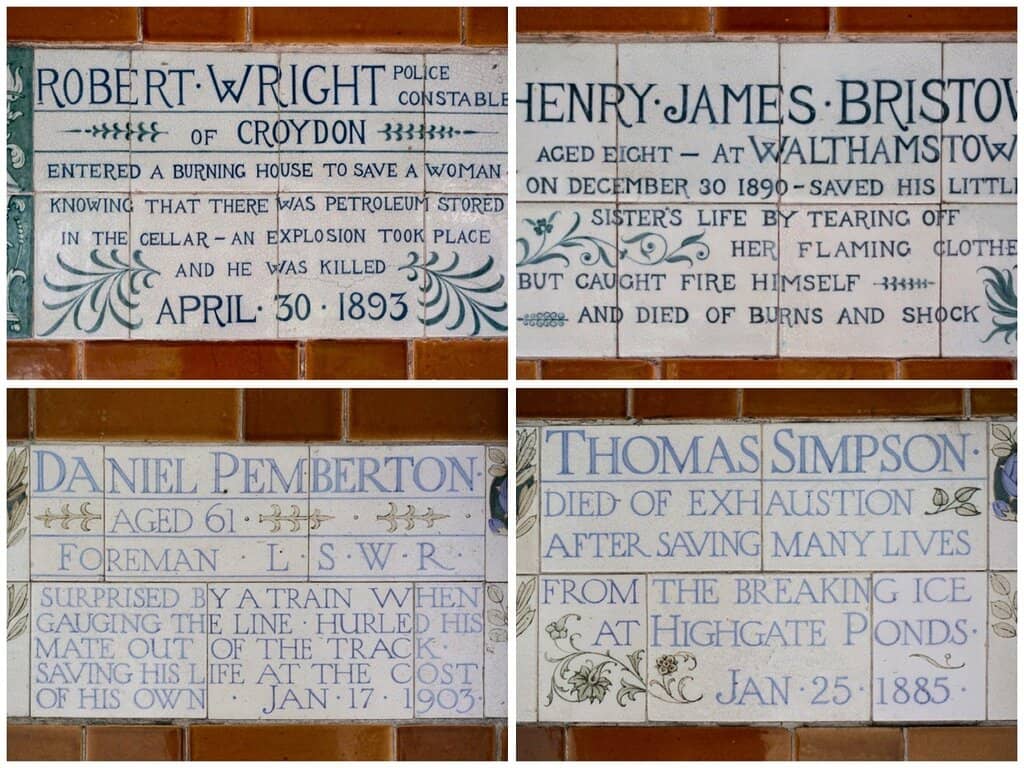 ROBERT · WRIGHT POLICE CONSTABLE
OF CROYDON
ENTERED A BURNING HOUSE TO SAVE A WOMAN
KNOWING THAT THERE WAS PETROLEUM STORED
IN THE CELLAR – AN EXPLOSION TOOK PLACE
AND HE WAS KILLED
APRIL · 30 · 1893
HENRY · JAMES · BRISTOW
AGED EIGHT – AT WALTHAMSTOW
ON DECEMBER 30 1890 – SAVED HIS LITTL
SISTER'S LIFE BY TEARING OFF
HER FLAMING CLOTHE
BUT CAUGHT FIRE HIMSELF
AND DIED OF BURNS AND SHOCK
DANIEL PEMBERTON ·
AGED 61 ·
FOREMAN · L · S · W · R ·
SURPRISED BY A TRAIN WHEN
GAUGING THE LINE · HURLED HIS
MATE OUT OF THE TRACK ·
SAVING HIS LIFE AT THE COST
OF HIS OWN · JAN · 17 · 1903 ·
THOMAS SIMPSON ·
DIED OF EXHAUSTION
AFTER SAVING MANY LIVES
FROM THE BREAKING ICE
AT HIGHGATE PONDS ·
JAN · 25 · 1885 ·